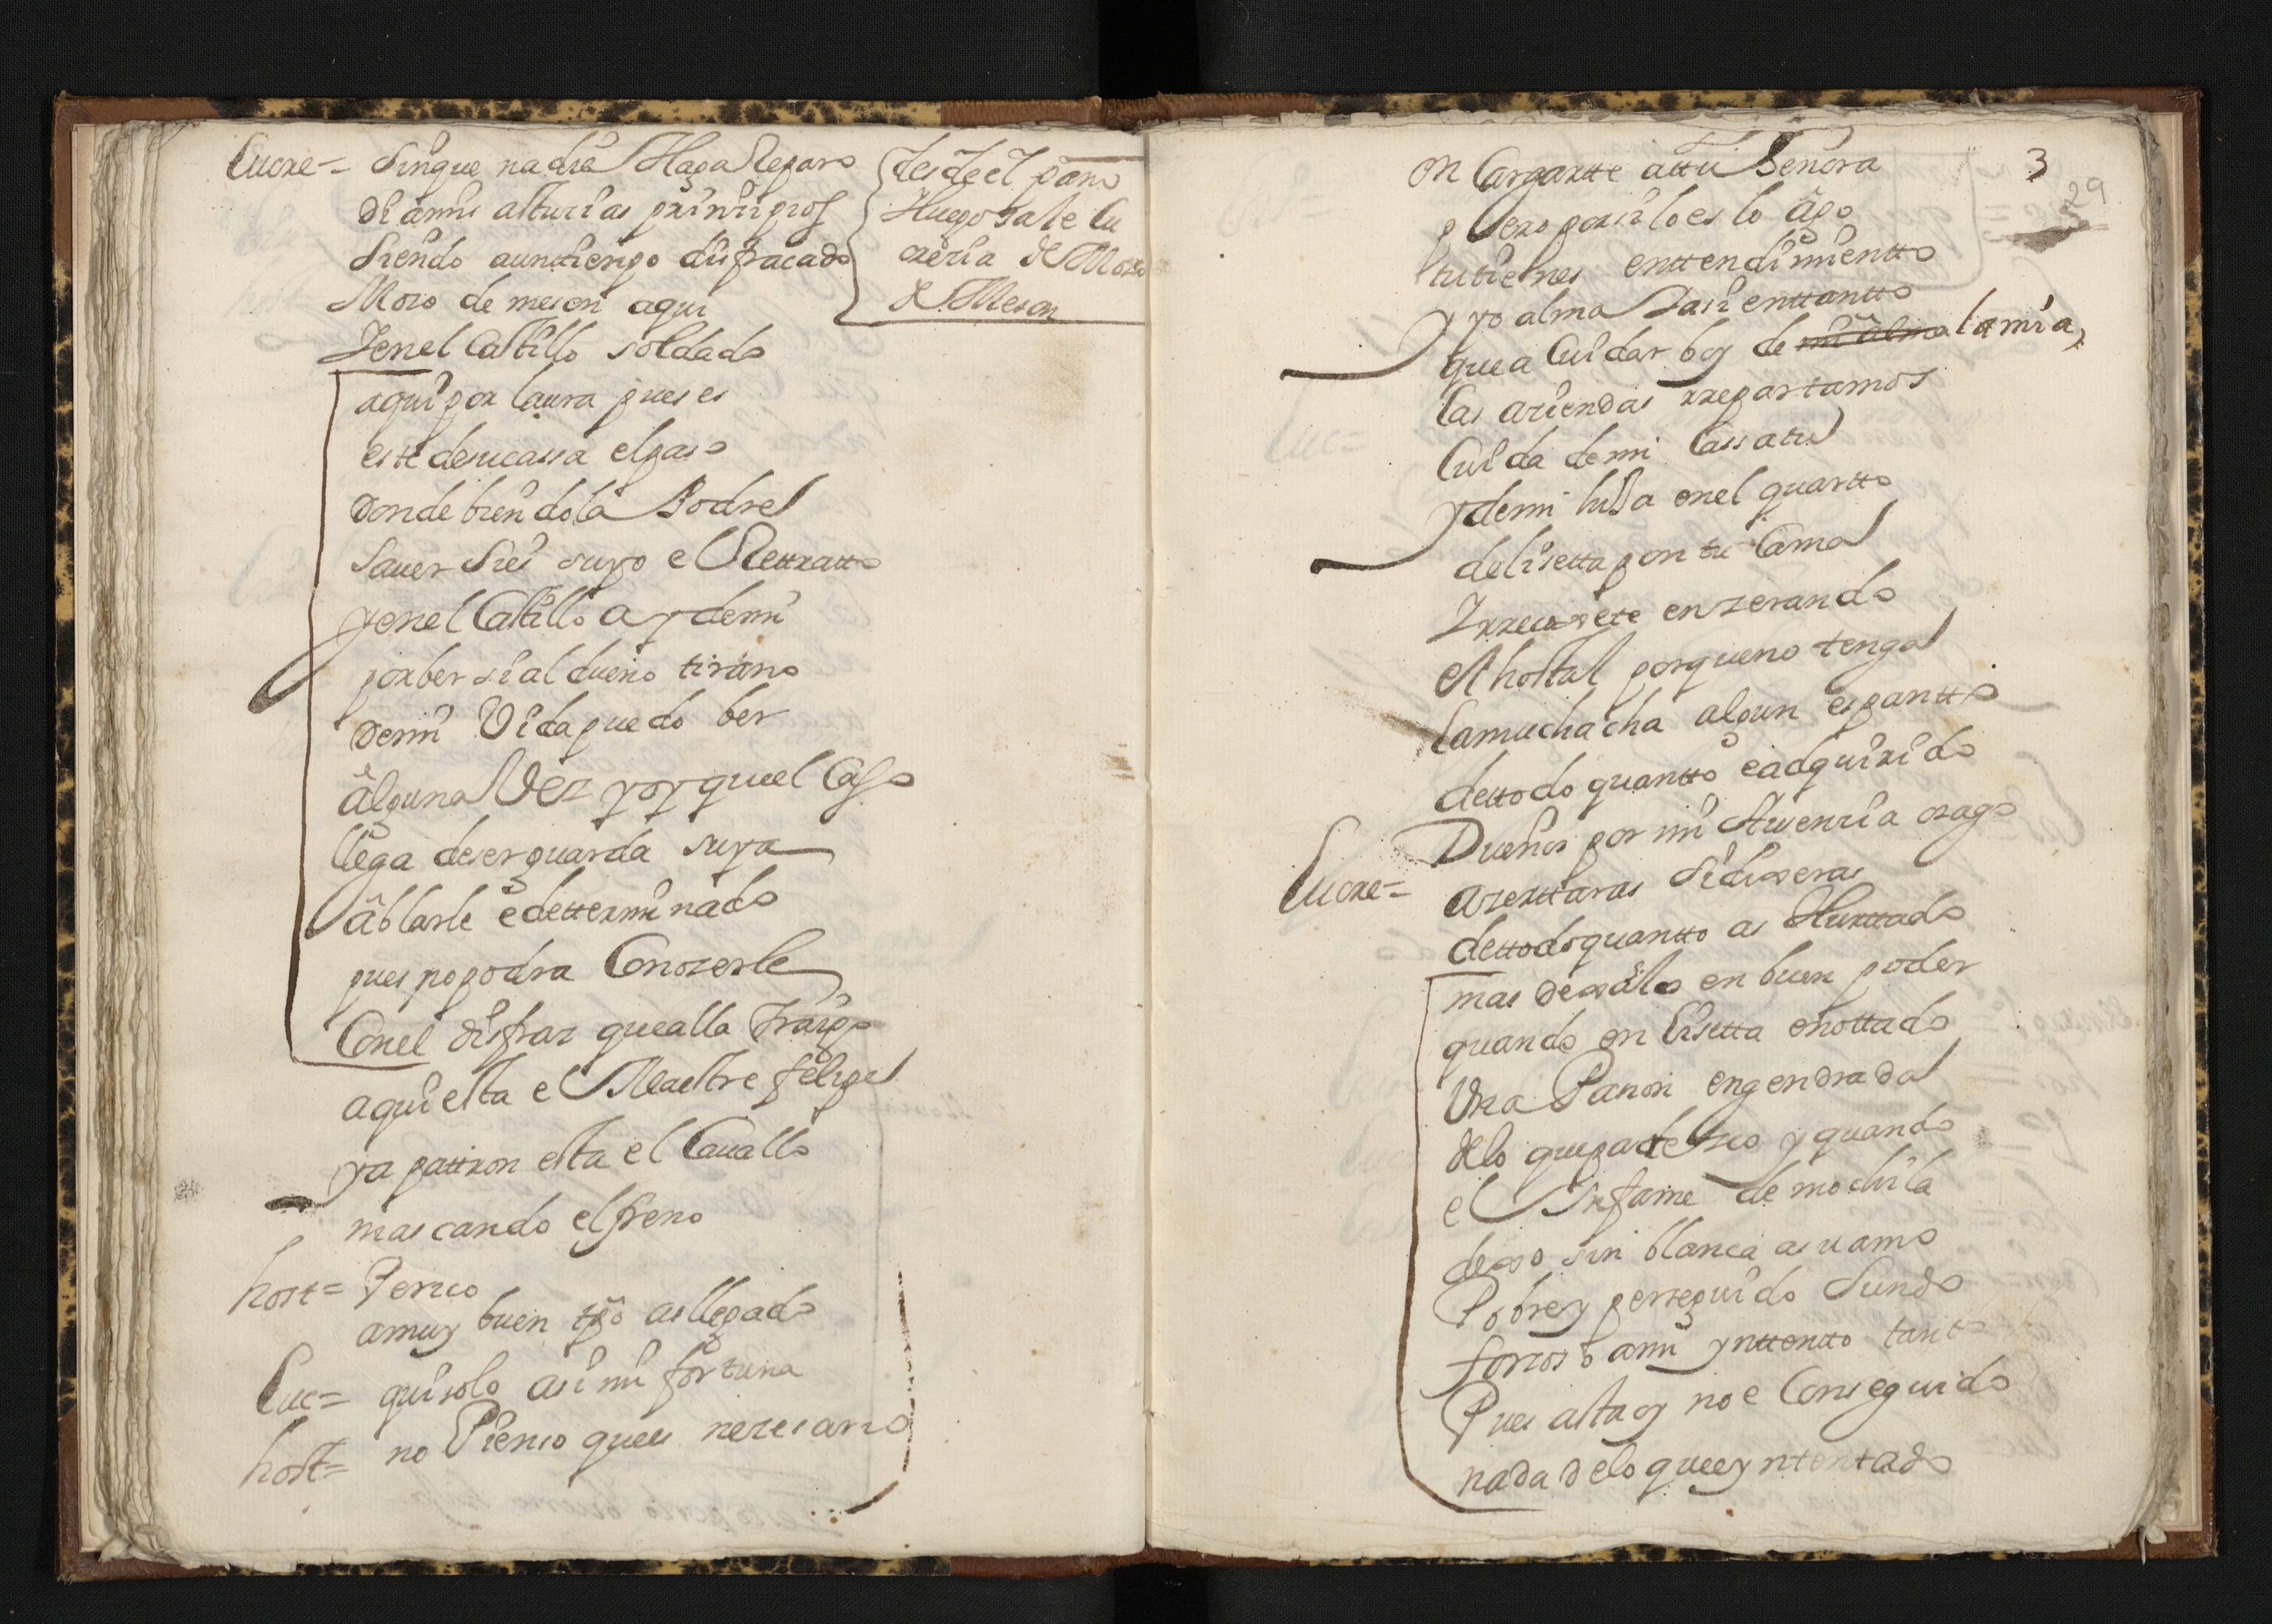 Lucre= Sin que nadie Haga Reparo
di â mis asturias prinzipios
siendo aun tiempo disfracado
Moso de meson aqui
Ienel Castillo soldado
{desde el pano
Huego sale lu
creçia de Moso
de Meson
aqui por laura pues es
este desucassa elpaso
donde biendola Podre
saver sies suyo el Rettratto
yenel Castillo ay demi
porber sial dueño tirano
demi Vida puedo ber
âlguna Vez yoy queel Casso
llega deserguarda suya
âblarle e dettermi nado
pues nopodra Conozerle
Conel disfraz quealla Traigo
aqui esta el Maestre felipe
ya pattron esta el Cavallo
mascando elfreno
host= Perico
amuy buen tpô as llegado
Luc= quisolo asi mi fortuna
host= no Pienso quees nezesario
3
29
en Cargartte attu Señora
pero porsi lo es lo âgo
tutienes enttendimientto
y yo alma Iasi enttantto
quea Cuidar boy de mi alma lamia,
las aziendas rrepartamos
Cuida demi Cassa tu
ydemi hija enel quartto
delisetta pon tu Cama
Irrecoxete enzerando
el hostal porqueno tenga
lamuchacha algun espantto
dettodo quantto eadquirido
Dueño por mi Ausenzia ozago
Lucre= azerttaras sidixeras
dettodo quantto as Hurttado
mas dexâlo en buen poder
quando en Lisetta enottado
Una Pasion engendrada
delo quepadezco y quando
el Infame de mochila
dexo sin blanca asuamo
Pobrey perseguido siendo
forzoso ami ynttentto tanto
Pues asta oy no e Conseguido
nada delo quee yntentado